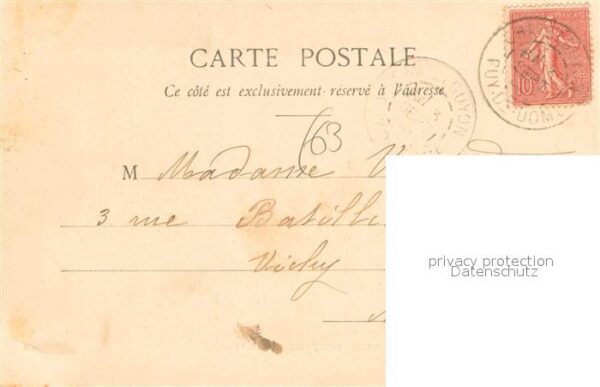 CARTE POSTALE
Ce côté est exclusivement réservé à l'adresse
63
M Madame V
3 rue
Vichy
GUYON
PUY-DE-DOME
10
privacy protection
Datenschutz